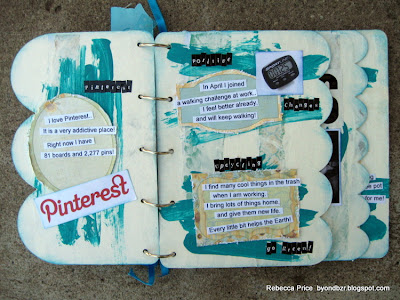 Pinterest
I love Pinterest.
It is a very addictive place!
Right now I have
81 boards and 2,277 pins!
Pinterest
Positive
In April I joined
a walking challenge at work..
I feel better already
and will keep walking!
Changes
Upcycling
I find many cool things in the trash
when I am working.
I bring lots of things home
and give them new life.
Every little bit helps the Earth!
go Green!
pot
for me!
Rebecca Price byondbzr.blogspot.com